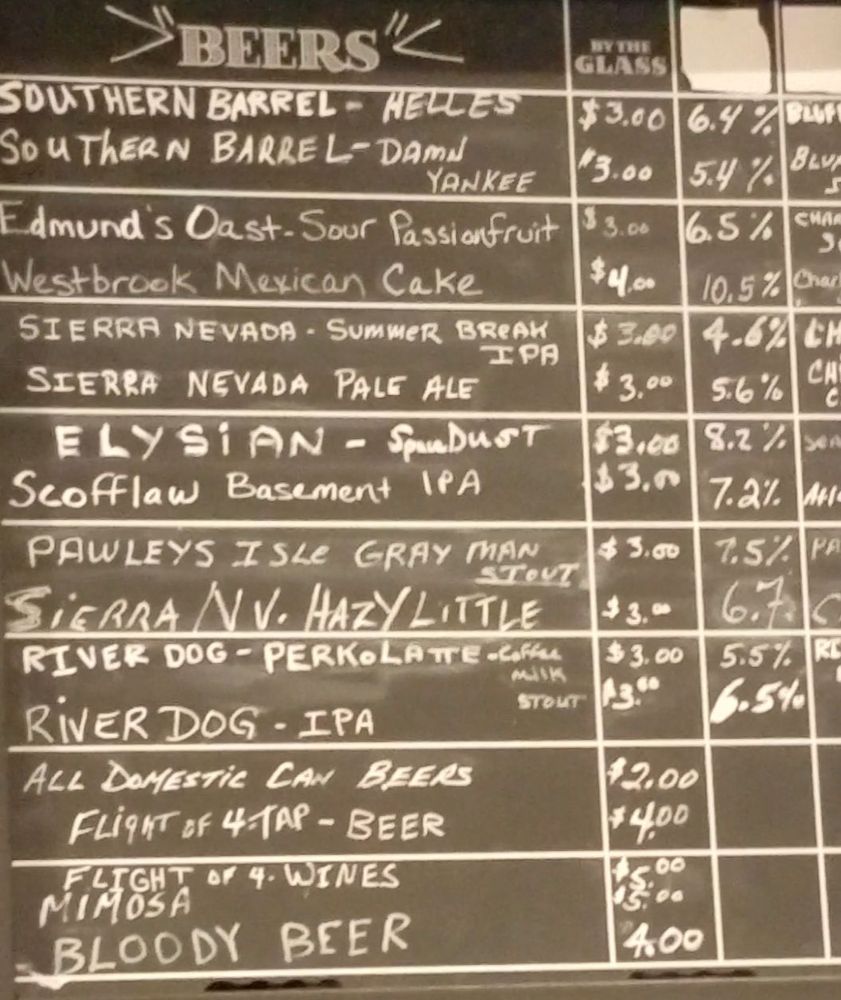 BEERS BY THE GLASS
SOUTHERN BARREL - HELLES $3.00 6.4%
SOUTHERN BARREL - DAMN YANKEE $3.00 5.4%
Edmund's Oast - Sour Passionfruit $3.00 6.5%
Westbrook Mexican Cake $4.00 10.5%
SIERRA NEVADA - Summer BREAK IPA $3.00 4.6%
SIERRA NEVADA PALE ALE $3.00 5.6%
ELYSIAN - Space DUST $3.00 8.2%
Scofflaw Basement IPA $3.00 7.2%
PAWLEYS ISLE GRAY MAN STOUT $3.00 7.5%
SIERRA NV. HAZY LITTLE $3.00 6.7
RIVER DOG - PERKOLATTE - Coffee MILK STOUT $3.00 5.5%
RIVER DOG - IPA $3.00 6.5%
ALL DOMESTIC CAN BEERS $2.00
FLIGHT OF 4-TAP - BEER $4.00
FLIGHT OF 4. WINES $5.00
MIMOSA $5.00
BLOODY BEER 4.00